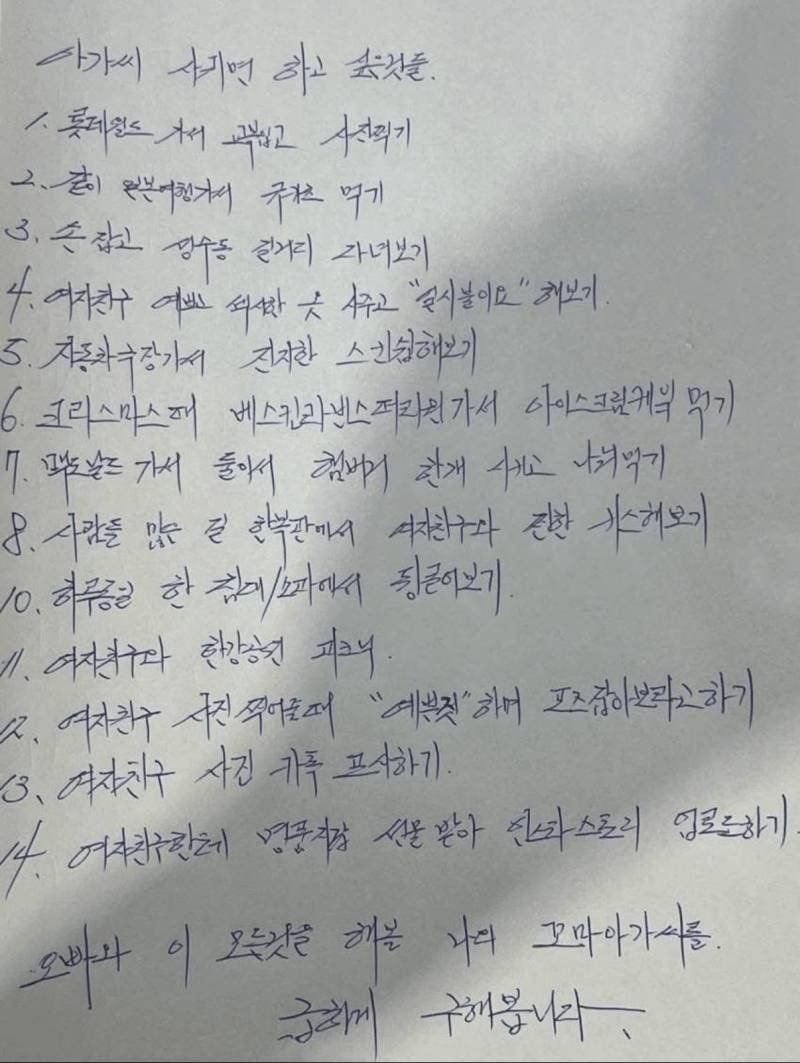 아가씨 사귀면 하고 싶은것들.
1. 롯데월드 가서 교복입고 사진찍기
2. 같이 일본여행가서 규카츠 먹기
3. 손 잡고 성수동 길거리 다녀보기
4. 여자친구 예쁘 섹시한 옷 사주고 "일시불이요" 해보기.
5. 자동차극장가서 진지한 스킨쉽해보기
6. 크리스마스때 베스킨라빈스써리원가서 아이스크림케잌 먹기
7. 맥도날드 가서 둘이서 햄버거 한개 시키고 나눠먹기
8. 사람들 많은 길 한복판에서 여자친구와 진한 키스해보기
10. 하루종일 한 침대/소파에서 뒹굴어보기.
11. 여자친구와 한강공원 피크닉.
12. 여자친구 사진찍어줄때 "예쁜짓"하며 포즈잡아보라고하기
13. 여자친구 사진 카톡 프사하기.
14. 여자친구한테 명품지갑 선물 받아 인스타스토리 업로드하기.
오빠와 이 모든것을 해볼 나의 꼬마아가씨를.
급하게 구해봅니다.